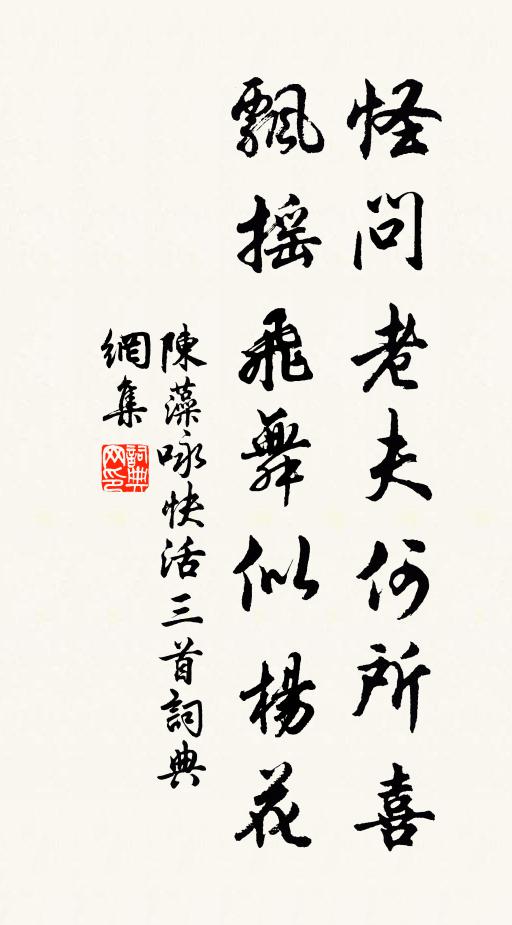 怪問老夫何所喜
飄搖飛舞似楊花
陳藻咏快活三首詞典
網集
詞典
网印